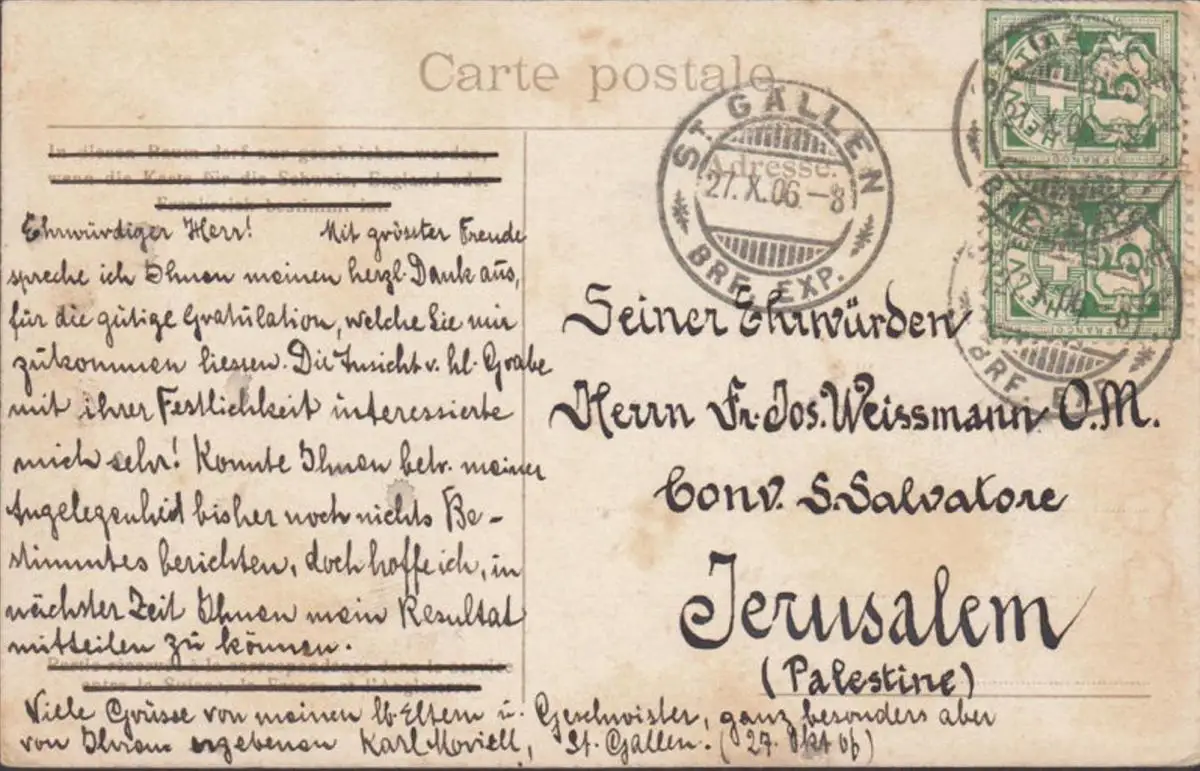 Carte postale
Adresse.
ST. GALLEN
27.X.06.–8
BRF. EXP.
HELVETIA
5
FRANCO
HELVETIA
5
FRANCO
BRF. EXP.
In diesen Raum darf nur geschrieben werden,
wenn die Karte für die Schweiz, England oder
Frankreich bestimmt ist.
Ehrwürdiger Herr! Mit grösster Freude
spreche ich Ihnen meinen herzl. Dank aus,
für die gütige Gratulation, welche Sie mir
zukommen liessen. Die Ansicht v. hl. Grabe
mit ihrer Festlichkeit interessierte
mich sehr! Konnte Ihnen betr. meiner
Angelegenheit bisher noch nichts Be-
stimmtes berichten, doch hoffe ich, in
nächster Zeit Ihnen mein Resultat
mitteilen zu können.
Partie réservée à la correspondance dans le service
entre la Suisse, la France et l'Angleterre
Viele Grüsse von meinen lb. Eltern u. Geschwister, ganz besonders aber
von Ihrem ergebenen Karl, St. Gallen. (27. Okt 06)
Seiner Ehrwürden
Herrn Fr. Jos. Weissmann O.M.
Conv. S. Salvatore
Jerusalem
(Palestine)